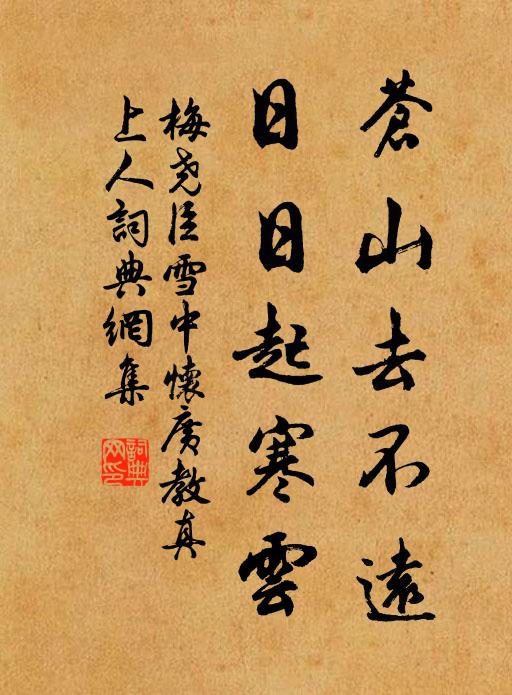 蒼山去不遠
日日起寒雲
梅堯臣雪中懷廣教真
上人詞典網集
詞典
网印